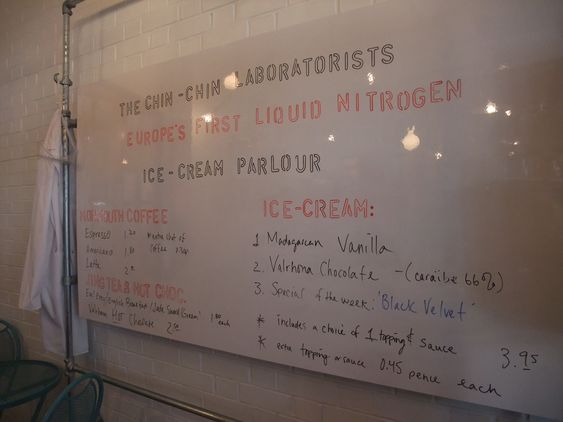 THE CHIN-CHIN LABORATORISTS
EUROPE'S FIRST LIQUID NITROGEN
ICE-CREAM PARLOUR
MONMOUTH COFFEE
Espresso 1.20
Americano
Latte
Coffee
JING TEA & HOT CHOC.
English Breakfast / Green 1.80 each
Valrhona HOT Chocolate 2.50
ICE-CREAM:
1 Madagascan Vanilla
2. Valrhona Chocolate - (caraïbe 66%)
3. Special of the week: 'Black Velvet'
* includes a choice of 1 topping & sauce
3.95
* extra topping or sauce 0.45 pence each